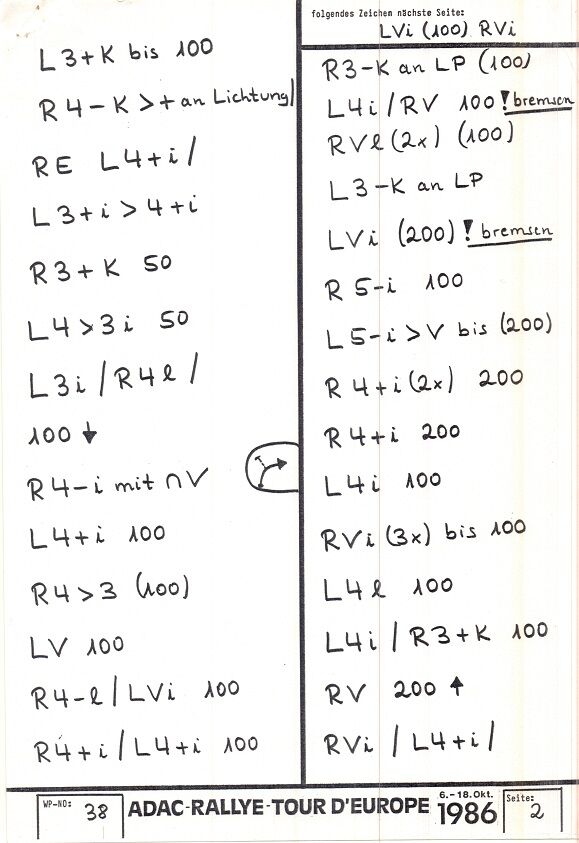 L3+K bis 100
R4-K>+ an Lichtung/
RE L4+i/
L3+i>4+i
R3+K 50
L4>3i 50
L3i/R4l/
100 ↓
R4-i mit ∩V
L4+i 100
R4>3 (100)
LV 100
R4-l/LVi 100
R4+i/L4+i 100
folgendes Zeichen nächste Seite:
LVi (100) RVi
R3-K an LP (100)
L4i/RV 100 ! bremsen
RVl(2x) (100)
L3-K an LP
LVi (200) ! bremsen
R5-i 100
L5-i>V bis (200)
R4+i(2x) 200
R4+i 200
L4i 100
RVi(3x) bis 100
L4l 100
L4i/R3+K 100
RV 200 ↑
RVi/L4+i/
WP-NO: 38
ADAC-RALLYE-TOUR D'EUROPE
6.-18.Okt.
1986
Seite: 2